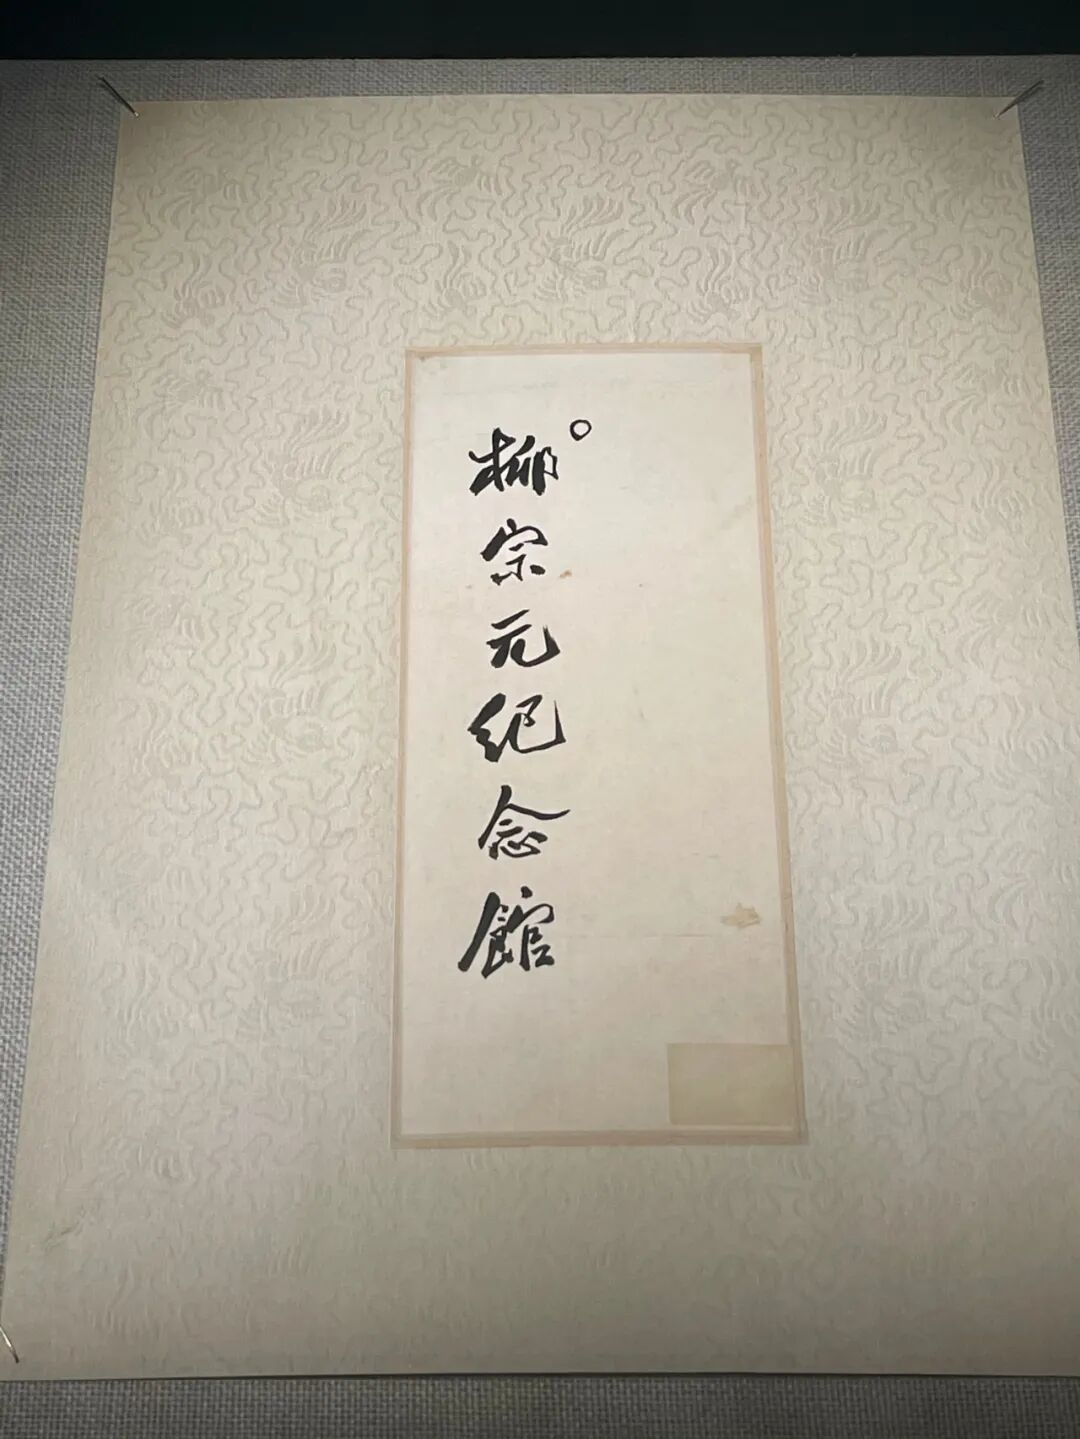 柳宗元纪念館